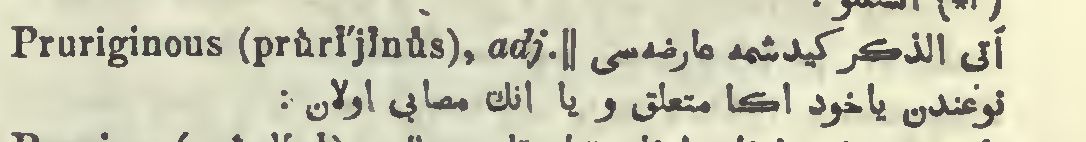 Pruriginous (prŭrĭ′jĭnŭs), adj. ‖ آتی الذكر كیدشمه عارضه‌سی
نوعندن ياخود اكا متعلق و يا انك مصابی اولان :